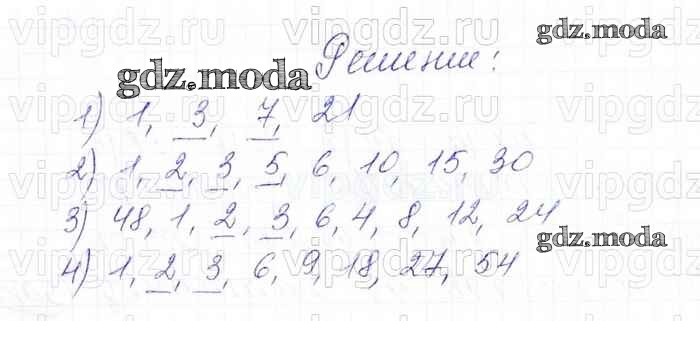 Решение:
1) 1, 3, 7, 21
2) 1, 2, 3, 5, 6, 10, 15, 30
3) 48, 1, 2, 3, 6, 4, 8, 12, 24
4) 1, 2, 3, 6, 9, 18, 27, 54
gdz.moda
gdz.moda
gdz.moda
vipgdz.ru
vipgdz.ru
vipgdz.ru
vipgdz.ru
vipgdz.ru
vipgdz.ru